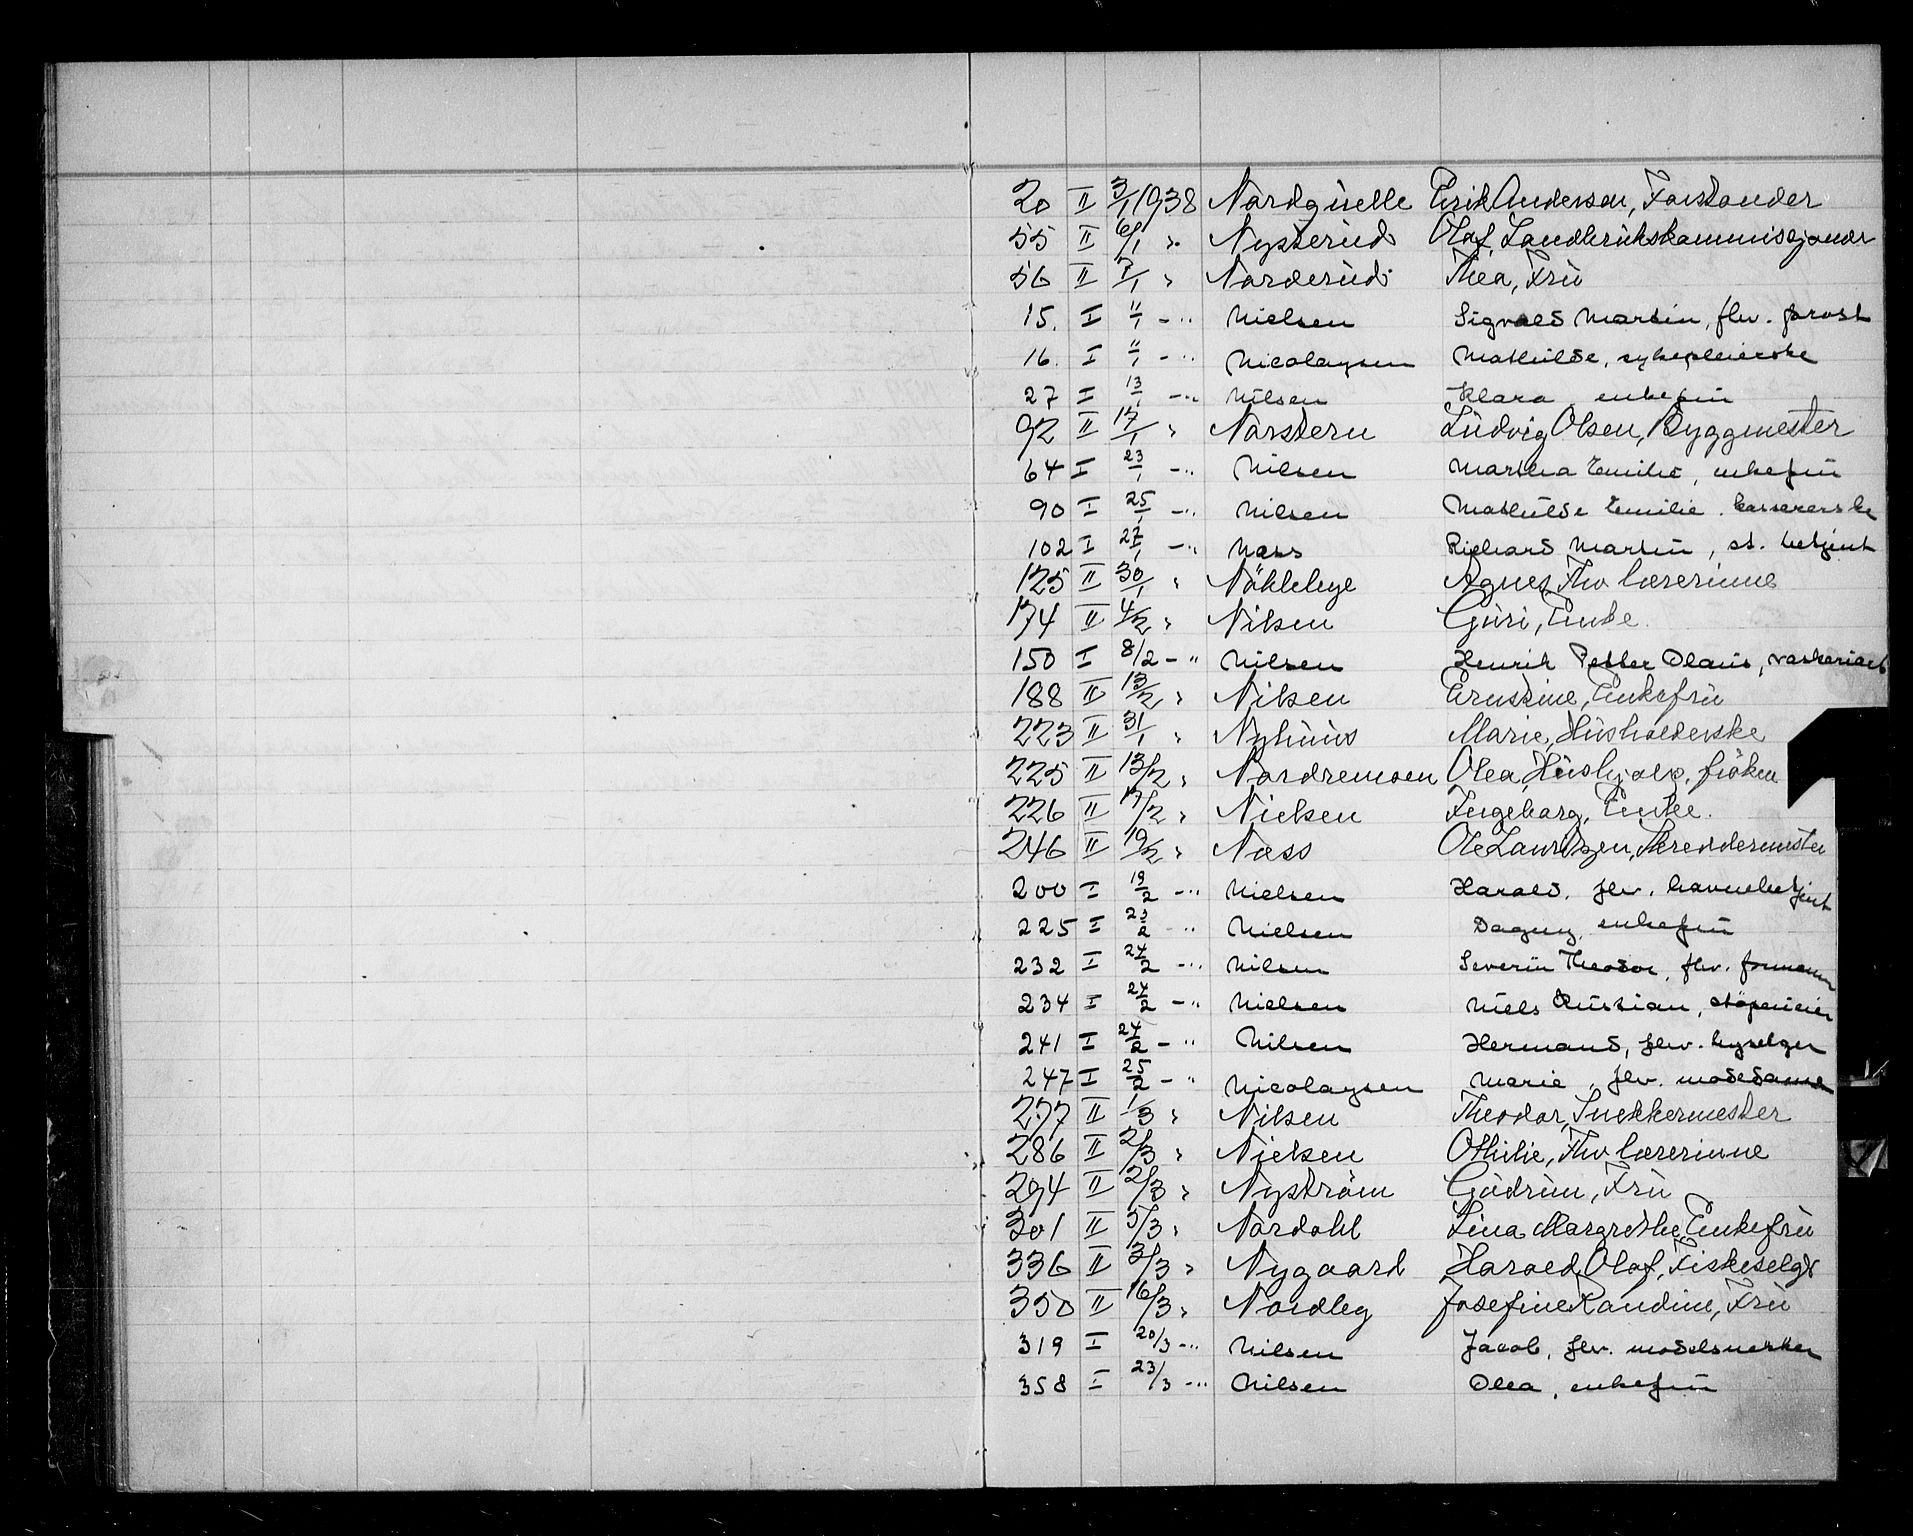 20 II 3/1 1938 Nordquelle Erik Anderson, Forstander
55 II 6/1 " Nysterud Olaf, Landbrukskommissjonær
56 II 7/1 " Norderud Thea, Frü
15. I 11/1 - " Nielsen Sigvald Martin, fhv. provst
16. I 11/1 - " Nicolaysen Mathilde, sykepleierske
27 I 13/1 - " Nilsen Klara enkefrü
92 II 17/1 " Norstern Ludvig Olsen, Byggmester
64 I 23/1 - " Nilsen Martha Emilie, enkefrü
90 I 25/1 - " Nilsen Mathilde Emilie. kassererske
102 I 27/1 - " Næss Richard Martin, st. betjent
125 II 30/1 " Nökleby Agnes, Fhv lærerinne
174 II 4/2 " Nilsen Guri, Enke
150 I 8/2 - " Nilsen Henrik Petter Olaus,
188 II 13/2 " Nilsen Ernstine, Enkefrü
223 II 31/1 " Nyhuus Marie, Husholderske
225 II 13/2 " Nordremoen Olea, Hushjælp, fröken
226 II 17/2 " Nielsen Ingeborg, Enke.
246 II 19/2 " Næss Ole Lauritzen, Skreddermester
200 I 19/2 - " Nielsen Harald, fhv. havnebetjent
225 I 23/2 - " Nielsen Dagny, enkefrü
232 I 24/2 - " Nilsen Severin Theodor, fhv. formann
234 I 24/2 - " Nielsen Niels Kristian,
241 I 24/2 - " Nilsen Hermand, fhv.
247 I 25/2 - " Nicolaysen Marie, fhv. motedame
277 II 1/3 " Nilsen Theodor, Snekkermester
286 II 2/3 " Nielsen Othilie, Fhv lærerinne
294 II 2/3 " Nyström Gudrun, Frü
301 II 5/3 " Nordahl Lina Margrethe, Enkefrü
336 II 3/3 " Nygaard Harald Olaf, Fiskeselgr
350 II 16/3 " Nordley Josefine Randine, Frü
319 I 20/3 - " Nilsen Jacob, fhv. modelsnekker
358 I 23/3 - " Nilsen Olea, enkefrü